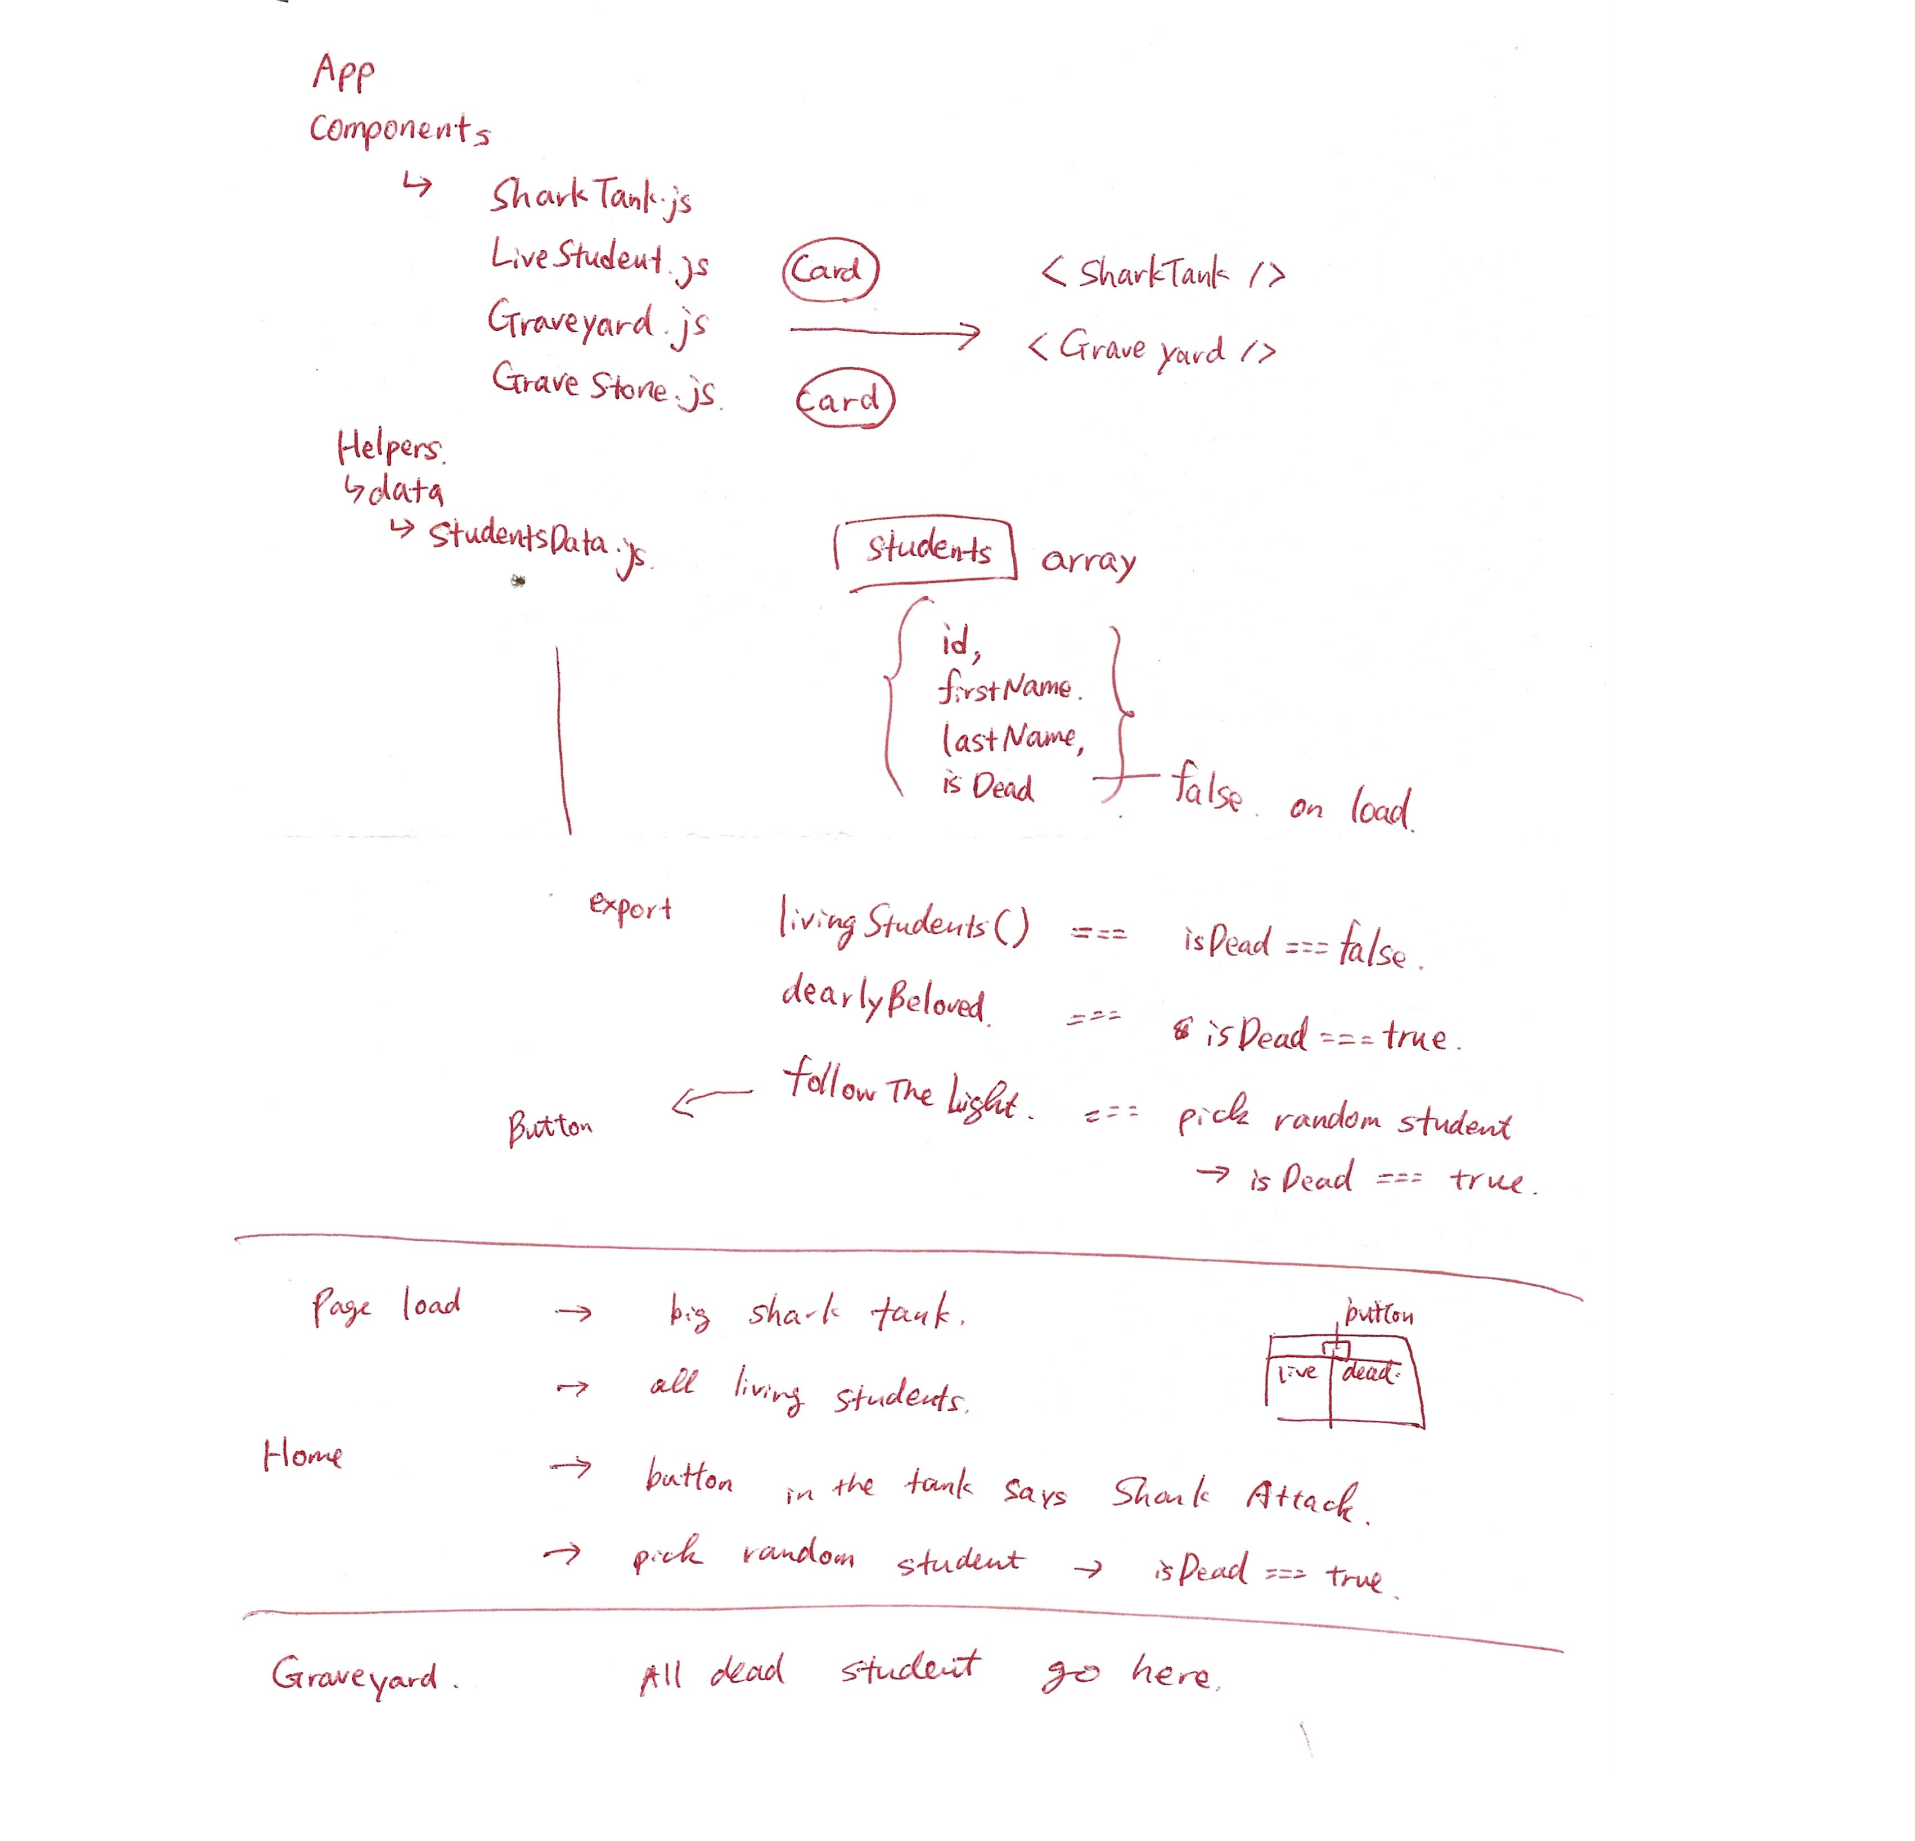 App
Components
↳ SharkTank.js
LiveStudent.js Card <SharkTank />
Graveyard.js → <Grave yard />
Grave Stone.js. Card
Helpers.
↳ data
↳ StudentsData.js.
students array
{ id,
firstName.
lastName,
isDead } false. on load.
export livingStudents() === isDead === false.
dearlyBeloved. === isDead === true.
Button ← follow The Light. === pick random student
→ isDead === true.
Page load → big shark tank.
button
live dead.
→ all living students.
Home → button in the tank says Shark Attack.
→ pick random student → isDead === true.
Graveyard. All dead student go here.